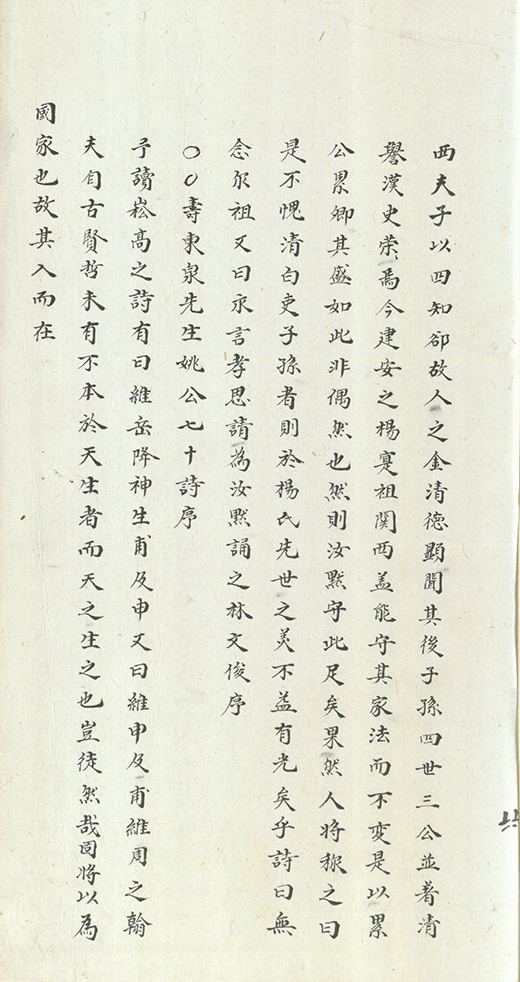 西夫子以四知卻故人之金清德顯聞其後子孫四世三公並著清
譽漢史荣焉今建安之楊寔祖関西盖能守其家法而不変是以累
公累卿其盛如此非偶然也然則汝黙守此足矣果然人將称之曰
是不愧清白吏子孫者則於楊氏先世之美不益有光矣乎詩曰無
念尔祖又曰永言孝思請為汝黙誦之林文俊序
〇〇壽東泉先生姚公七十詩序
予讀崧高之詩有曰維岳降神生甫及申又曰維申及甫維周之翰
夫自古賢哲未有不本於天生者而天之生之也豈徒然哉固將以為
國家也故其入而在